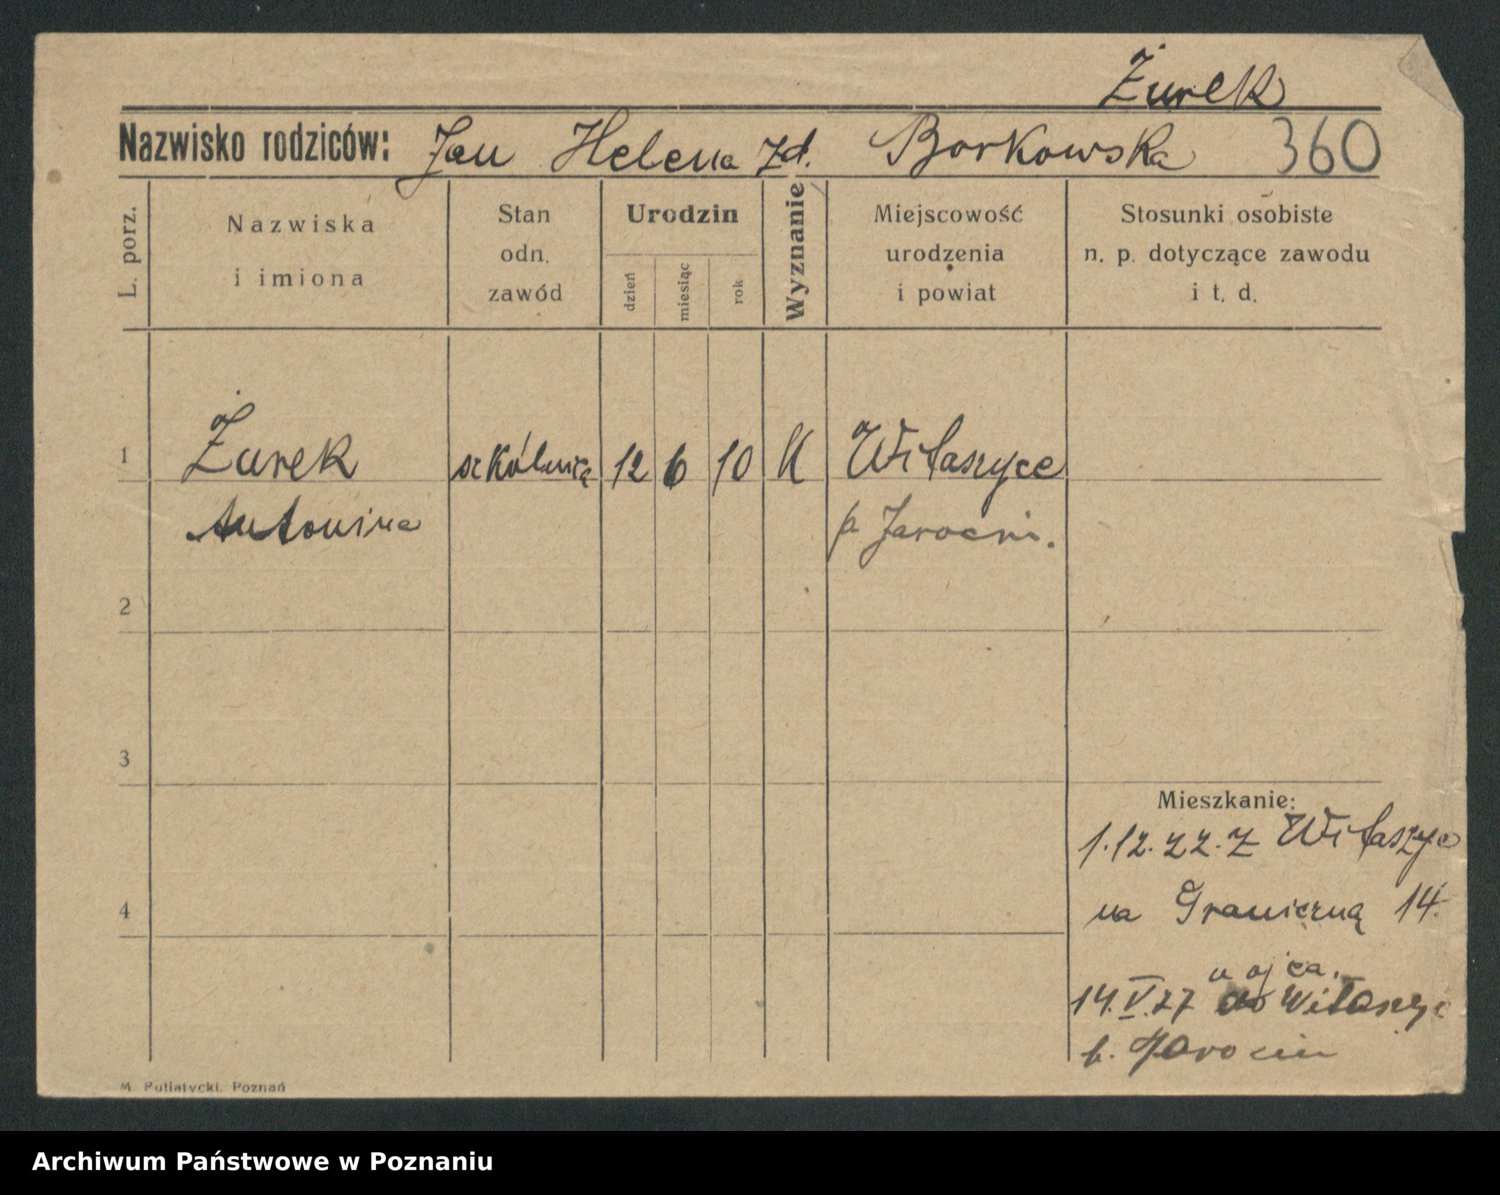 Żurek
Nazwisko rodziców: Jan Helena zd. Borkowska 360
L. porz.
Nazwiska
i imiona
Stan
odn.
zawód
Urodzin
dzień
miesiąc
rok
Wyznanie
Miejscowość
urodzenia
i powiat
Stosunki osobiste
n. p. dotyczące zawodu
i t. d.
1 Żurek szkólnicą 12 6 10 K Witaszyce
Antonina p. Jarocin.
2
3
Mieszkanie:
1.12.22. z Witaszyc
4 na Graniczną 14.
u ojca.
14.V.27 do Witaszyc
p. Jarocin
M. Putiatycki, Poznań
Archiwum Państwowe w Poznaniu